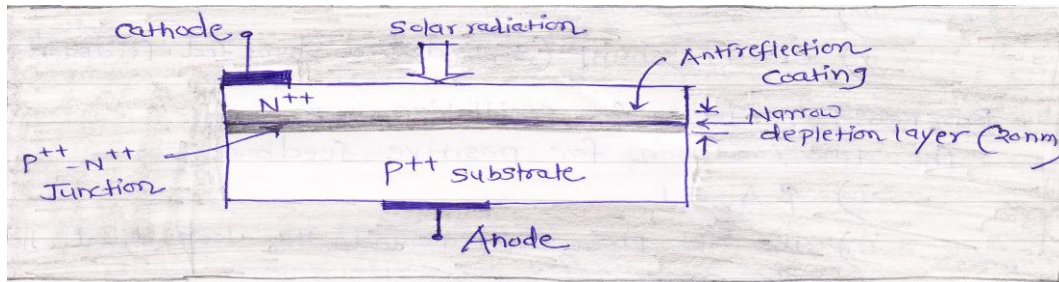 Cathode
Solar radiation
Antireflection
Coating
N++
Narrow
depletion layer (20nm)
P++-N++
Junction
P++ substrate
Anode